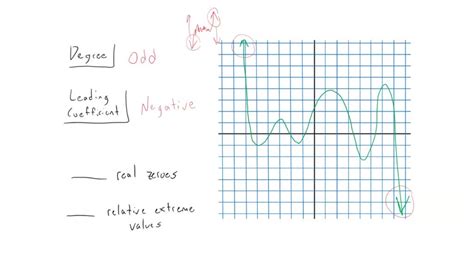 Degree Odd
Leading
Coefficient Negative
real zeroes
relative extreme
values